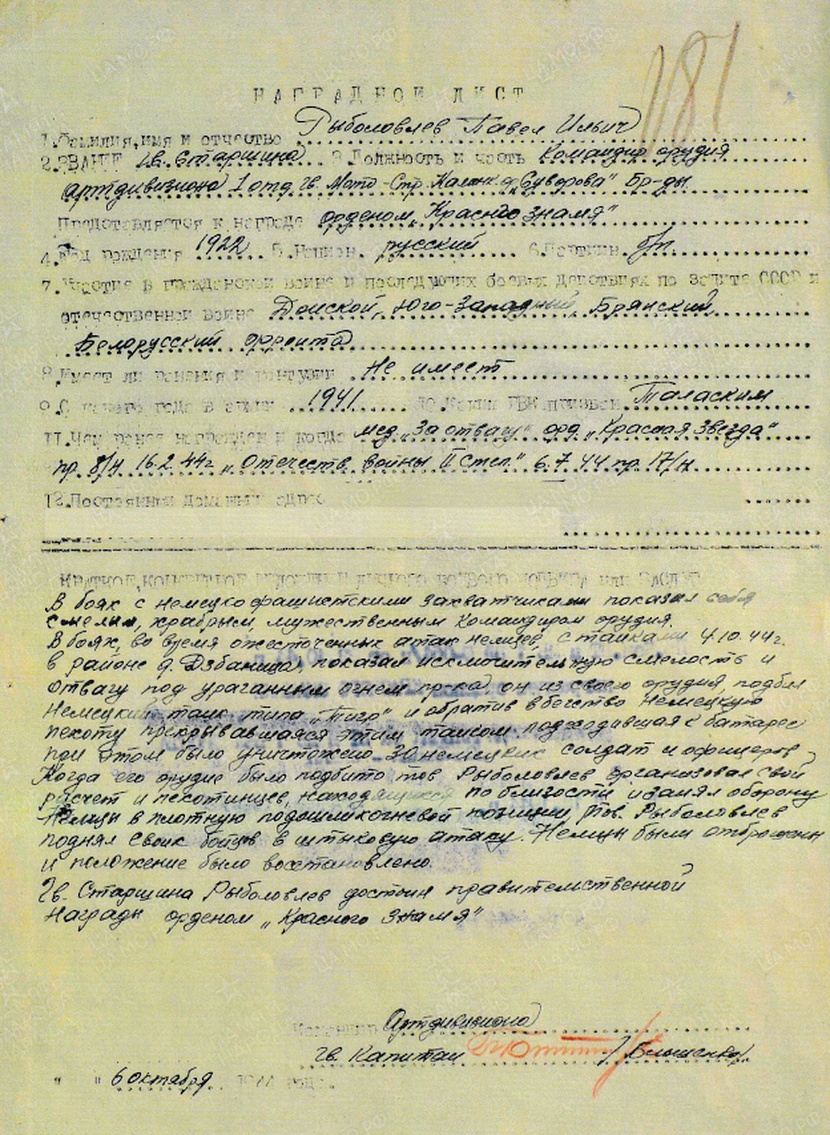 181
НАГРАДНОЙ ЛИСТ
1. Фамилия, имя и отчество Рыболовлев Павел Ильич
2. ЗВАНИЕ гв. Старшина 3. Должность и часть Командир орудия
артдивизиона 1 отд. гв. Мото-Стр. Калинк. о. "Суворова" Бр-ды
Представляется к награде орденом "Красное знамя"
4. Год рождения 1922 5. Национ. русский 6. Партийн. б/п
7. Участие в гражданской войне и последующих боевых действиях по защите СССР и
отечественной войне Донской, Юго-Западный, Брянский,
Белорусский фронта
8. Имеет ли ранения и контузии Не имеет
9. С какого года в армии 1941 10. Каким РВК призван Таласким
11. Чем ранее награжден и когда мед. "За отвагу" орд. "Красная звезда"
пр. 8/н 16.2.44г. "Отечеств. войны II степ." 6.7.44 пр. 17/н
12. Постоянный домашний адрес
В боях с немецко фашистскими захватчиками показал себя
смелым, храбрым, мужественным командиром орудия.
В боях, во время ожесточенных атак немцев, с танками 4.10.44г.
в районе д. Дзбаница, показал исключительную смелость и
отвагу под ураганным огнем пр-ка, он из своего орудия, подбил
Немецкий танк типа "Тигр" и обратив в бегство немецкую
пехоту прикрывавшаяся этим танком. подходившая к батарее
при этом было уничтожено 30 немецких солдат и офицеров
Когда его орудие было подбито тов. Рыболовлев организовал свой
расчет и пехотинцев, находящихся по близости и занял оборону
Немцы в плотную подошли к огневой позиции, тов. Рыболовлев
поднял своих бойцов в штыковую атаку. Немцы были отброшены
и положение было восстановлено.
Гв. Старшина Рыболовлев достоин правительственной
Награды орденом "Красного знамя"
Командир Артдивизиона
гв. Капитан /Белышенко/
" " 6 октября 1944 года.